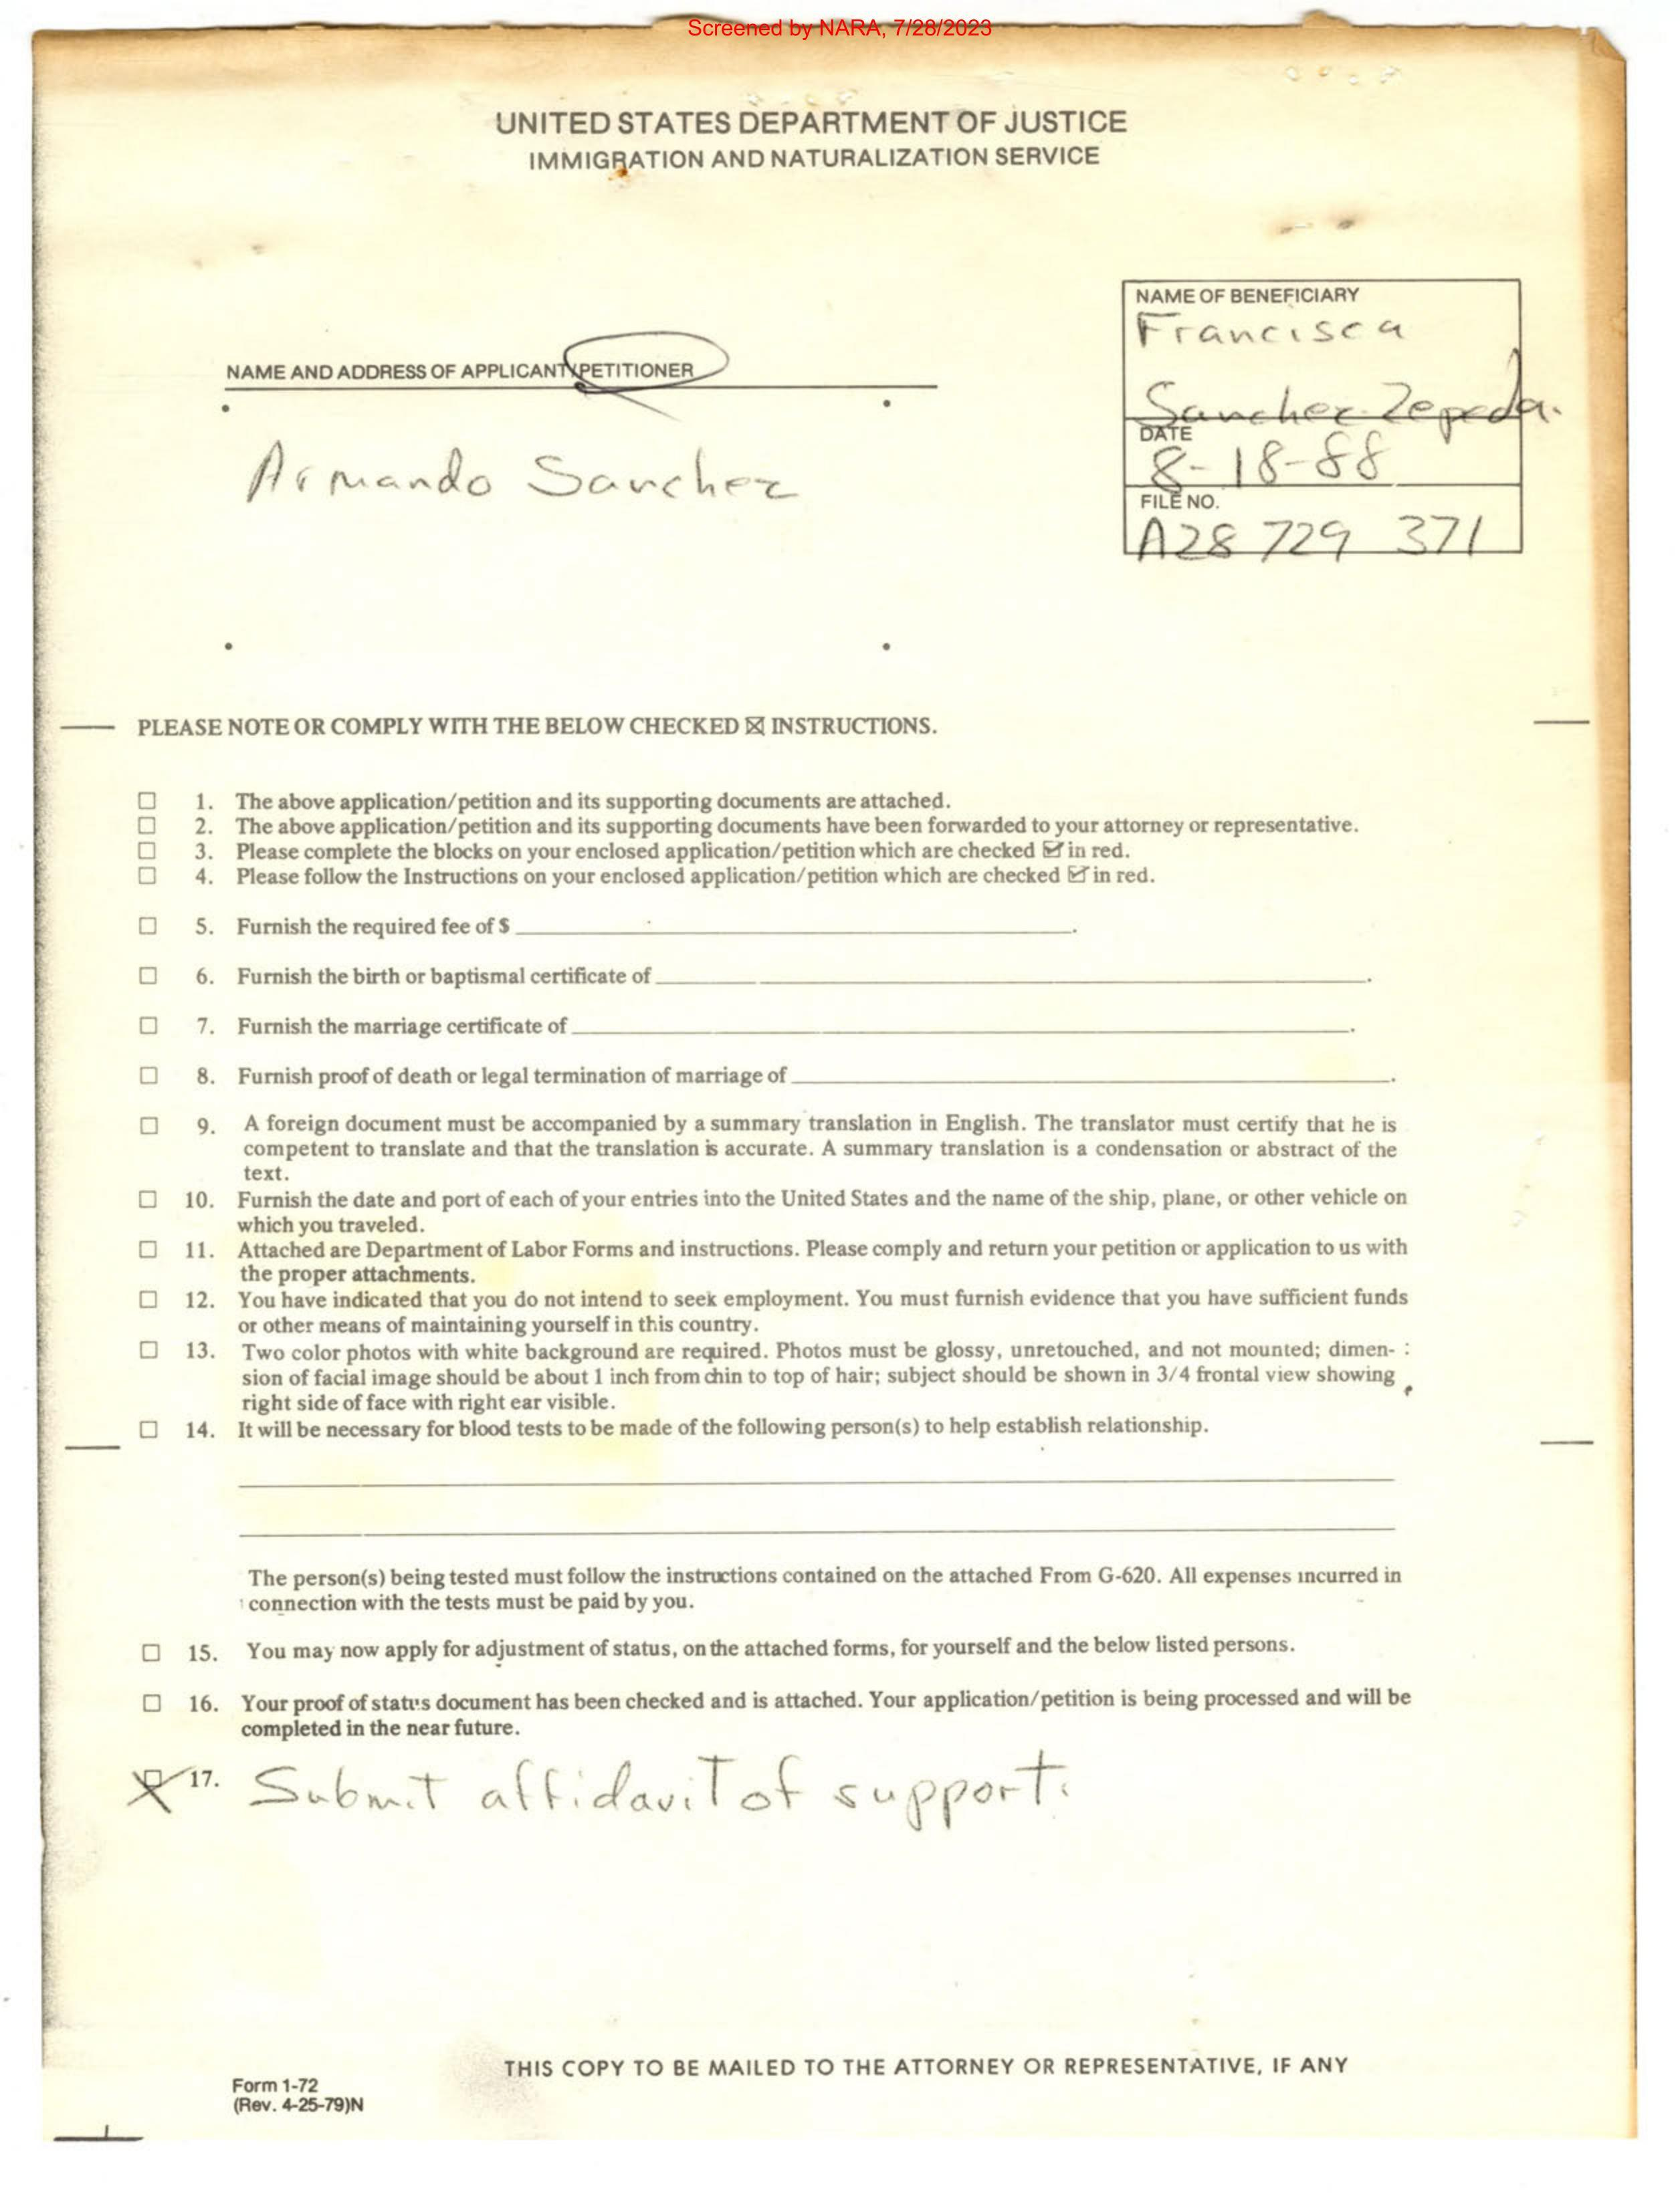 Screened by NARA, 7/28/2023
UNITED STATES DEPARTMENT OF JUSTICE
IMMIGRATION AND NATURALIZATION SERVICE
NAME OF BENEFICIARY
Francisca
Sanchez-Zepeda.
DATE
8-18-88
FILE NO.
A28 729 371
NAME AND ADDRESS OF APPLICANT/PETITIONER
Armando Sanchez
PLEASE NOTE OR COMPLY WITH THE BELOW CHECKED ☒ INSTRUCTIONS.
☐ 1. The above application/petition and its supporting documents are attached.
☐ 2. The above application/petition and its supporting documents have been forwarded to your attorney or representative.
☐ 3. Please complete the blocks on your enclosed application/petition which are checked ☑ in red.
☐ 4. Please follow the Instructions on your enclosed application/petition which are checked ☑ in red.
☐ 5. Furnish the required fee of $ ______.
☐ 6. Furnish the birth or baptismal certificate of ______.
☐ 7. Furnish the marriage certificate of ______.
☐ 8. Furnish proof of death or legal termination of marriage of ______.
☐ 9. A foreign document must be accompanied by a summary translation in English. The translator must certify that he is
competent to translate and that the translation is accurate. A summary translation is a condensation or abstract of the
text.
☐ 10. Furnish the date and port of each of your entries into the United States and the name of the ship, plane, or other vehicle on
which you traveled.
☐ 11. Attached are Department of Labor Forms and instructions. Please comply and return your petition or application to us with
the proper attachments.
☐ 12. You have indicated that you do not intend to seek employment. You must furnish evidence that you have sufficient funds
or other means of maintaining yourself in this country.
☐ 13. Two color photos with white background are required. Photos must be glossy, unretouched, and not mounted; dimen-
sion of facial image should be about 1 inch from chin to top of hair; subject should be shown in 3/4 frontal view showing
right side of face with right ear visible.
☐ 14. It will be necessary for blood tests to be made of the following person(s) to help establish relationship.
The person(s) being tested must follow the instructions contained on the attached From G-620. All expenses incurred in
connection with the tests must be paid by you.
☐ 15. You may now apply for adjustment of status, on the attached forms, for yourself and the below listed persons.
☐ 16. Your proof of status document has been checked and is attached. Your application/petition is being processed and will be
completed in the near future.
☒ 17. Submit affidavit of support.
THIS COPY TO BE MAILED TO THE ATTORNEY OR REPRESENTATIVE, IF ANY
Form 1-72
(Rev. 4-25-79)N